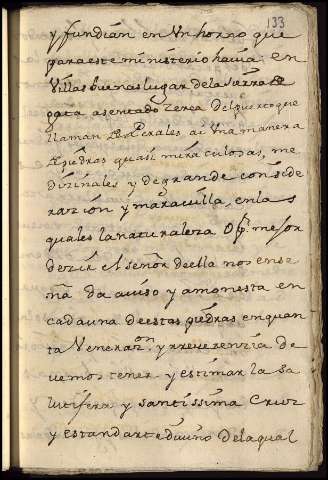 133
y fundian en Un horno que
para este ministerio havia en
Villas buenas lugar de la sierra de
gata asentado zerca del puerto que
llaman Perales ai Una manera
de piedras quasi miraculosas, me
dizinales y de grande conside
razión y maravilla, en las
quales la naturaleza O pr. mejor
dezir el señor de ella nos ense
ña da aviso y amonesta en
cada una de estas piedras en quan
ta Venerazon. y reverenzia de
vemos tener y estimar la sa
lutifera y santissima Cruz
y estandarte divino de la qual